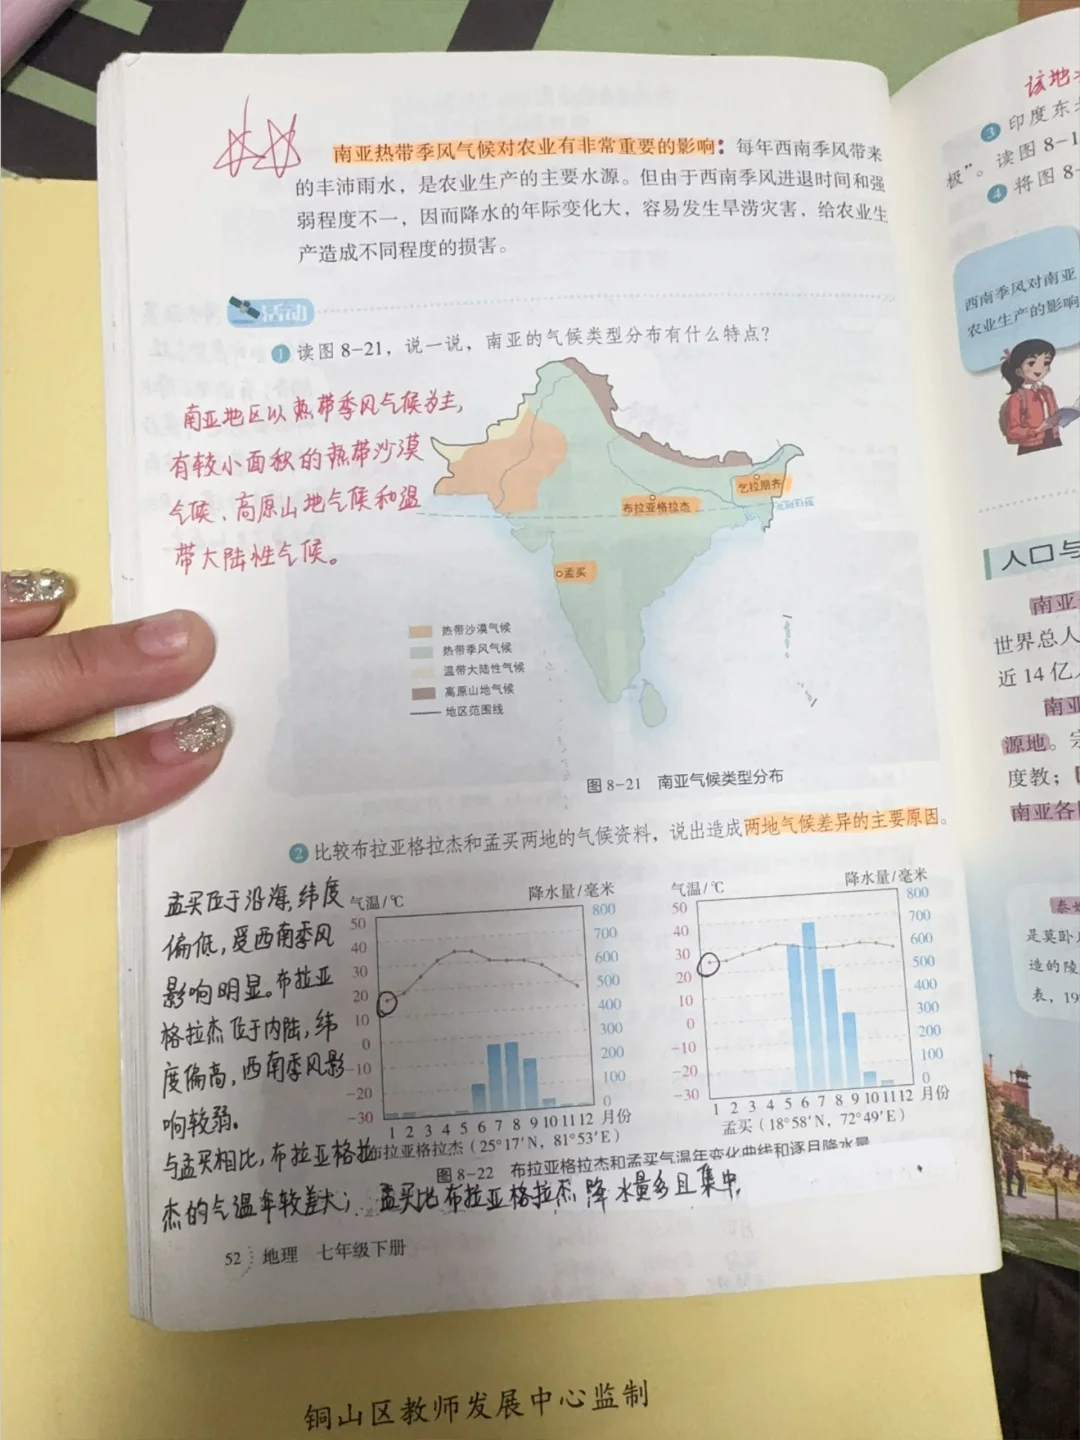 南亚热带季风气候对农业有非常重要的影响：每年西南季风带来
的丰沛雨水，是农业生产的主要水源。但由于西南季风进退时间和强
弱程度不一，因而降水的年际变化大，容易发生旱涝灾害，给农业生
产造成不同程度的损害。
活动
1 读图8-21，说一说，南亚的气候类型分布有什么特点？
南亚地区以热带季风气候为主，
有较小面积的热带沙漠
气候、高原山地气候和温
带大陆性气候。
乞拉朋齐
布拉亚格拉杰
孟买
热带沙漠气候
热带季风气候
温带大陆性气候
高原山地气候
地区范围线
图8-21 南亚气候类型分布
2 比较布拉亚格拉杰和孟买两地的气候资料，说出造成两地气候差异的主要原因。
孟买位于沿海，纬度
偏低，受西南季风
影响明显。布拉亚
格拉杰位于内陆，纬
度偏高，西南季风影
响较弱。
与孟买相比，布拉亚格拉
杰的气温年较差大；孟买比布拉亚格拉杰降水量多且集中。
气温/℃ 降水量/毫米
50 800
40 700
30 600
20 500
10 400
0 300
-10 200
-20 100
-30 0
1 2 3 4 5 6 7 8 9 10 11 12 月份
布拉亚格拉杰（25°17′N，81°53′E）
气温/℃ 降水量/毫米
50 800
40 700
30 600
20 500
10 400
0 300
-10 200
-20 100
-30 0
1 2 3 4 5 6 7 8 9 10 11 12 月份
孟买（18°58′N，72°49′E）
图8-22 布拉亚格拉杰和孟买气温年变化曲线和逐月降水量
52 地理 七年级下册
该地
3 印度东
极”。读图8-1
4 将图8-
西南季风对南亚
农业生产的影响
人口与
南亚
世界总人
近14亿
南亚
源地。
度教；
南亚各
是莫卧
造的陵
表，19
铜山区教师发展中心监制